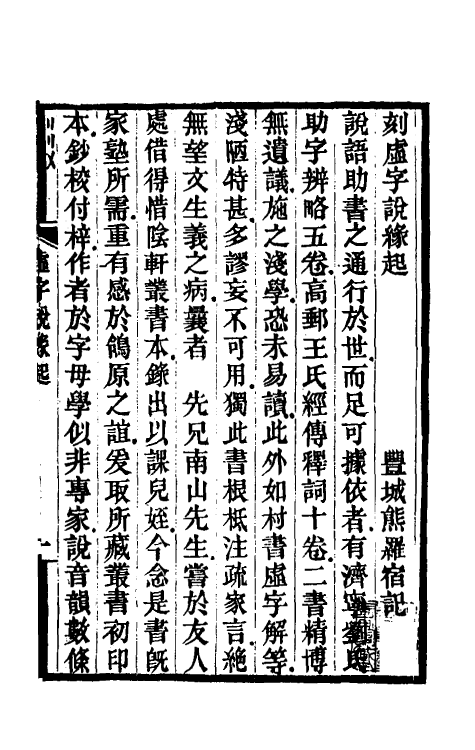 刻虛字說緣起　豐城熊羅宿記
說語助書之通行於世而足可據依者有濟寧劉氏
助字辨略五卷高郵王氏經傳釋詞十卷二書精博
無遺議施之淺學恐未易讀此外如村書虛字解等
淺陋特甚多謬妄不可用獨此書根柢注疏家言絕
無望文生義之病曩者　先兄南山先生嘗於友人
處借得惜陰軒叢書本錄出以課兒姪今念是書旣
家塾所需重有感於鴒原之誼爰取所藏叢書初印
本鈔校付梓作者於字母學似非專家說音韻數條
虛字說緣起　一